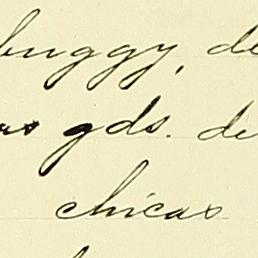 buggy, de
as gds. de
chicas